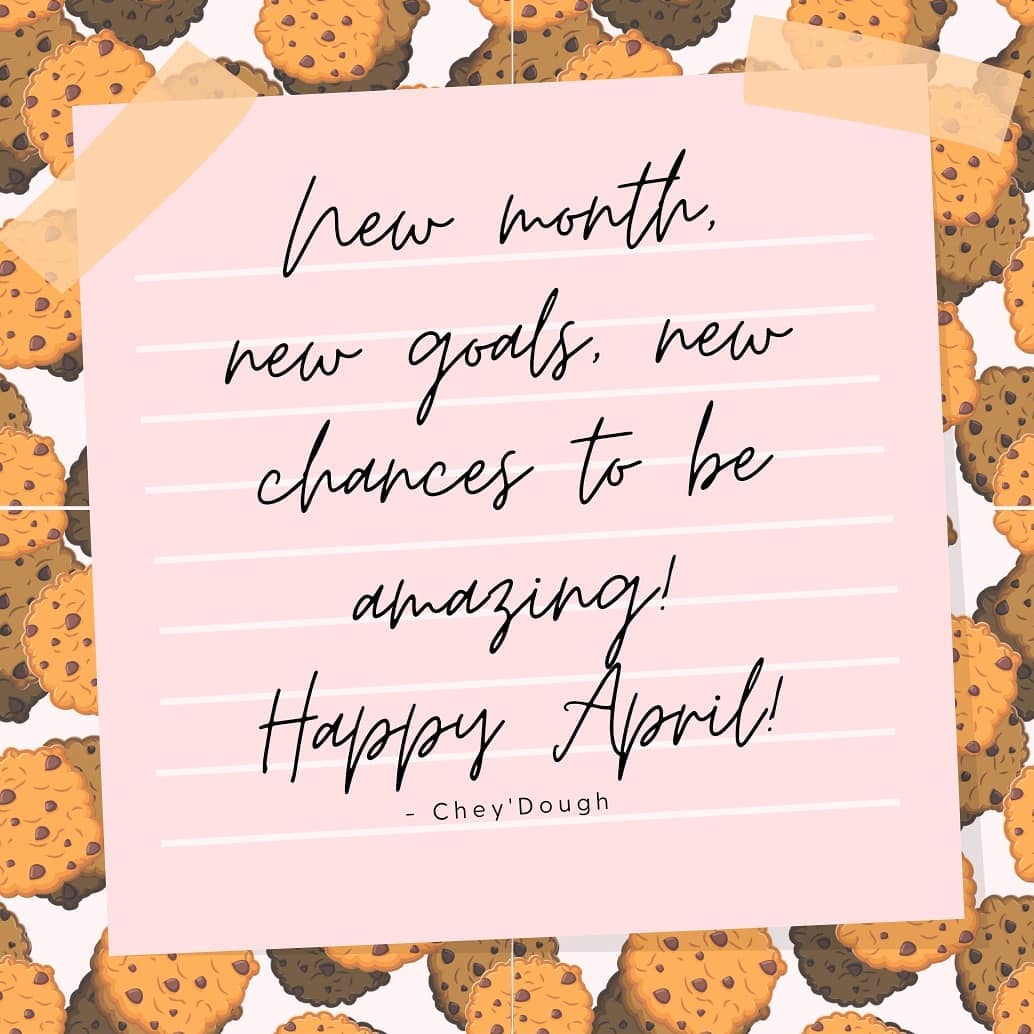 New month,
new goals, new
chances to be
amazing!
Happy April!
- Chey'Dough